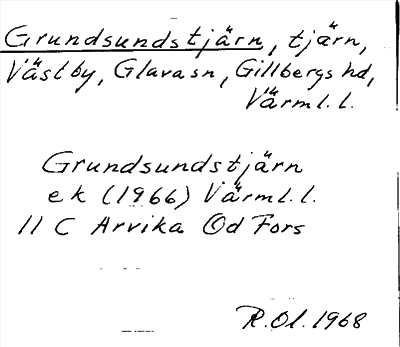 Grundsundstjärn, tjärn,
Västby, Glava sn, Gillbergs hd,
Värml. l.
Grundsundstjärn
ek (1966) Värml. l.
11 C Arvika Od Fors
R. Ol. 1968